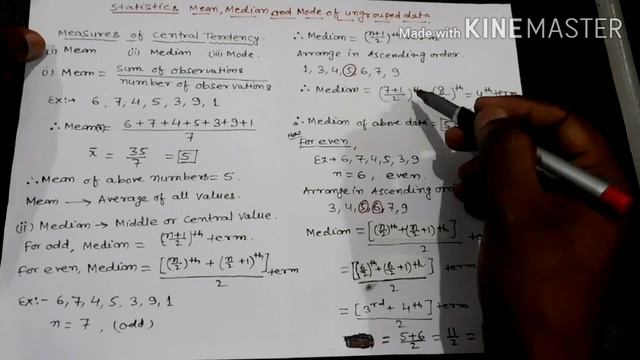 Statistics Mean, Median and Mode of ungrouped data
Made with KINEMASTER
Measures of central Tendency.
(i) Mean (ii) Median (iii) Mode.
(i) Mean = sum of observations / number of observations
Ex:- 6, 7, 4, 5, 3, 9, 1
∴ Mean = 6+7+4+5+3+9+1 / 7
x̄ = 35/7 = 5
∴ Mean of above numbers = 5.
Mean → Average of all values.
(ii) Median → Middle or Central value.
For odd, Median = (n+1/2)th term.
For even, Median = [(n/2)th + (n/2+1)th] / 2 term
Ex:- 6, 7, 4, 5, 3, 9, 1
n = 7, (odd)
∴ Median = (n+1/2)th
Arrange in Ascending order.
1, 3, 4, 5, 6, 7, 9
∴ Median = (7+1/2)th (8/)th = 4th term
∴ Median of above data = 5
Now
For even,
Ex:- 6, 7, 4, 5, 3, 9
n = 6, even.
Arrange in Ascending order
3, 4, 5, 6, 7, 9
Median = [(n/2)th + (n/2+1)th] / 2
= [(6/2)th + (6/2+1)th] / 2 term
= [3rd + 4th] / 2 term
= 5+6/2 = 11/2 =